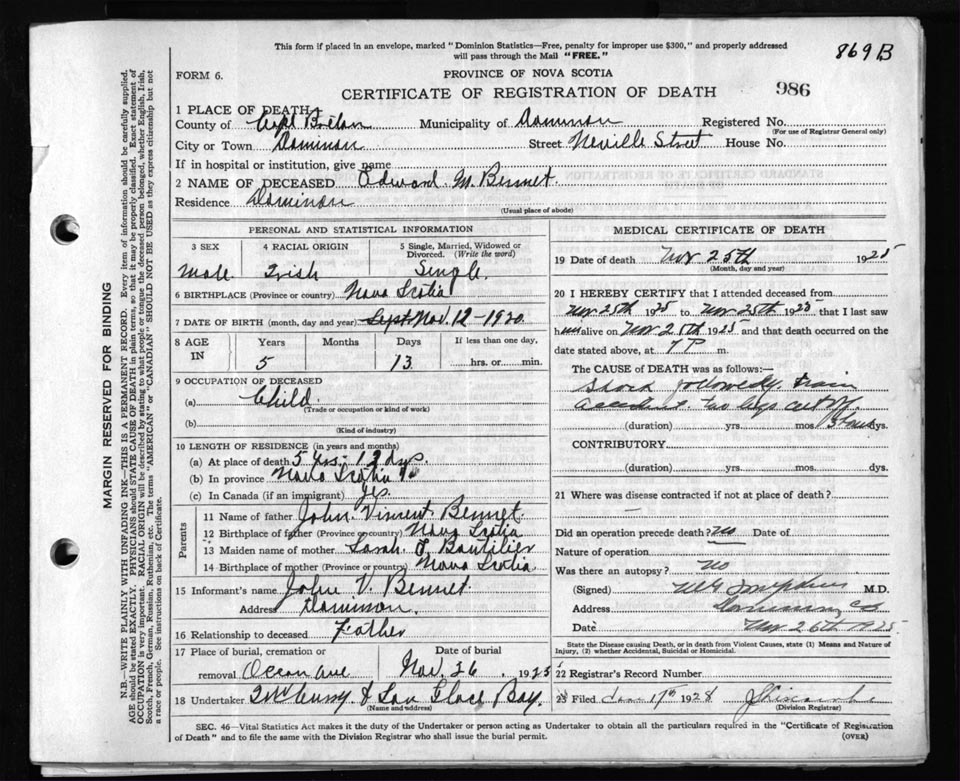 This form if placed in an envelope, marked "Dominion Statistics—Free, penalty for improper use $300," and properly addressed
will pass through the Mail "FREE."
869B
FORM 6.
PROVINCE OF NOVA SCOTIA
CERTIFICATE OF REGISTRATION OF DEATH
986
1 PLACE OF DEATH
County of Cape Breton Municipality of Dominion Registered No.
(For use of Registrar General only)
City or Town Dominion Street Neville Street House No.
If in hospital or institution, give name
2 NAME OF DECEASED Edward M. Bennet.
Residence Dominion
(Usual place of abode)
PERSONAL AND STATISTICAL INFORMATION
3 SEX 4 RACIAL ORIGIN 5 Single, Married, Widowed or Divorced. (Write the word)
Male Irish Single.
6 BIRTHPLACE (Province or country) Nova Scotia
7 DATE OF BIRTH (month, day and year) Sept Nov. 12-1920.
8 AGE IN Years Months Days If less than one day,
5 13 hrs. or min.
9 OCCUPATION OF DECEASED
(a) Child
(Trade or occupation or kind of work)
(b)
(Kind of industry)
10 LENGTH OF RESIDENCE (in years and months)
(a) At place of death 5 yrs. - 13 dys.
(b) In province Nova Scotia
(c) In Canada (if an immigrant) Yes.
Parents
11 Name of father John. Vincent. Bennet.
12 Birthplace of father (Province or country) Nova Scotia
13 Maiden name of mother Sarah. J. Boutilier
14 Birthplace of mother (Province or country) Nova Scotia
15 Informant's name John V. Bennet
Address Dominion.
16 Relationship to deceased Father
17 Place of burial, cremation or Date of burial
removal Ocean Ave Nov. 26, 1925
18 Undertaker & Son Glace Bay.
(Name and address)
MEDICAL CERTIFICATE OF DEATH
19 Date of death Nov 25th 1925
(Month, day and year)
20 I HEREBY CERTIFY that I attended deceased from
Nov 25th 1925 to Nov 25th 1925 that I last saw
him alive on Nov 25th 1925 and that death occurred on the
date stated above, at 7 P m.
The CAUSE of DEATH was as follows:—
Shock followed by train
accident. two legs cut off.
(duration) yrs. mos. 3 hours dys.
CONTRIBUTORY
(duration) yrs. mos. dys.
21 Where was disease contracted if not at place of death?
Did an operation precede death? no Date of
Nature of operation
Was there an autopsy? no
(Signed) M.D.
Address
Date Nov 26th 1925.
State the Disease causing Death, or in death from Violent Causes, state (1) Means and Nature of
Injury, (2) whether Accidental, Suicidal or Homicidal.
22 Registrar's Record Number
23 Filed 17th 1928
(Division Registrar)
SEC. 46—Vital Statistics Act makes it the duty of the Undertaker or person acting as Undertaker to obtain all the particulars required in the "Certificate of Registration
of Death" and to file the same with the Division Registrar who shall issue the burial permit.
(OVER)
MARGIN RESERVED FOR BINDING
N.B.—WRITE PLAINLY WITH UNFADING INK—THIS IS A PERMANENT RECORD. Every item of information should be carefully supplied.
AGE should be stated EXACTLY. PHYSICIANS should STATE CAUSE OF DEATH in plain terms, so that it may be properly classified. Exact statement of
OCCUPATION is very important. RACIAL ORIGIN will be described by stating to what people or tongue the deceased person belonged, whether English, Irish,
Scotch, French, German, Russian, Ruthenian, etc. The terms "AMERICAN" or "CANADIAN" SHOULD NOT BE USED as they express citizenship but not
a race or people. See instructions on back of Certificate.